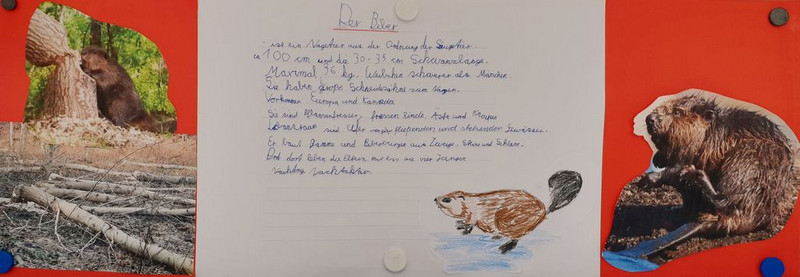 Der Biber
ist ein Nagetier aus der Ordnung der Säugetier.
ca 100 cm und da 30-35 cm Schwanzlänge.
Maximal 36 kg. Weibchen schwerer als Männchen.
Sie haben große Schneidezähne zum nagen.
Vorkommen Europa und Kanada
Sie sind Pflanzenfresser, fressen Rinde Äste und
Lebensraum sind Ufer von fließenden und stehender Gewässer.
Er baut Dämme und Biberburgen aus Zweige, Steine und Schlamm.
dort leben die Eltern mit bis zu vier Jungen
nachtaktiv.